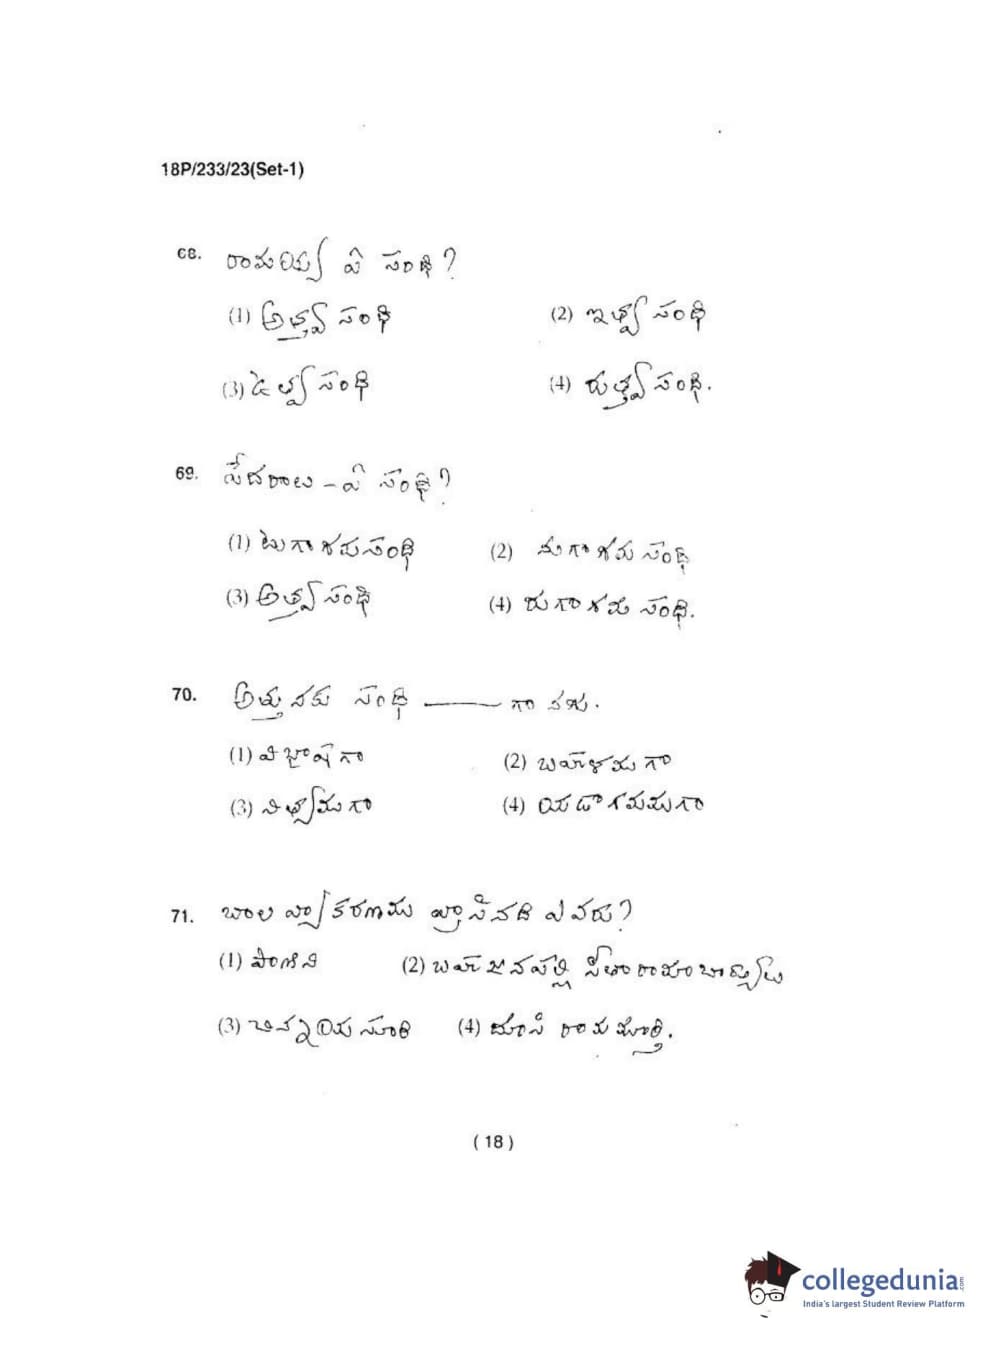 18P/233/23(Set-1)
68. రామయ్య ఏ సంధి?
(1) అత్త్వ సంధి (2) ఇత్త్వ సంధి
(3) ఉత్వ సంధి (4) రుత్త్వ సంధి.
69. పేదరాలు - ఏ సంధి?
(1) టుగాగమ సంధి (2) నుగాగమ సంధి
(3) అత్త్వ సంధి (4) రుగాగమ సంధి.
70. అత్తునకు సంధి ——— గా నగు.
(1) విభాషగా (2) బహుళముగా
(3) నిత్యముగా (4) యడాగమముగా
71. బాల వ్యాకరణము వ్రాసినది ఎవరు?
(1) పాణిని (2) బహుజనపల్లి సీతారామాచార్యులు
(3) చిన్నయ సూరి (4) దూసి రామమూర్తి.
( 18 )
collegedunia.com
India's largest Student Review Platform